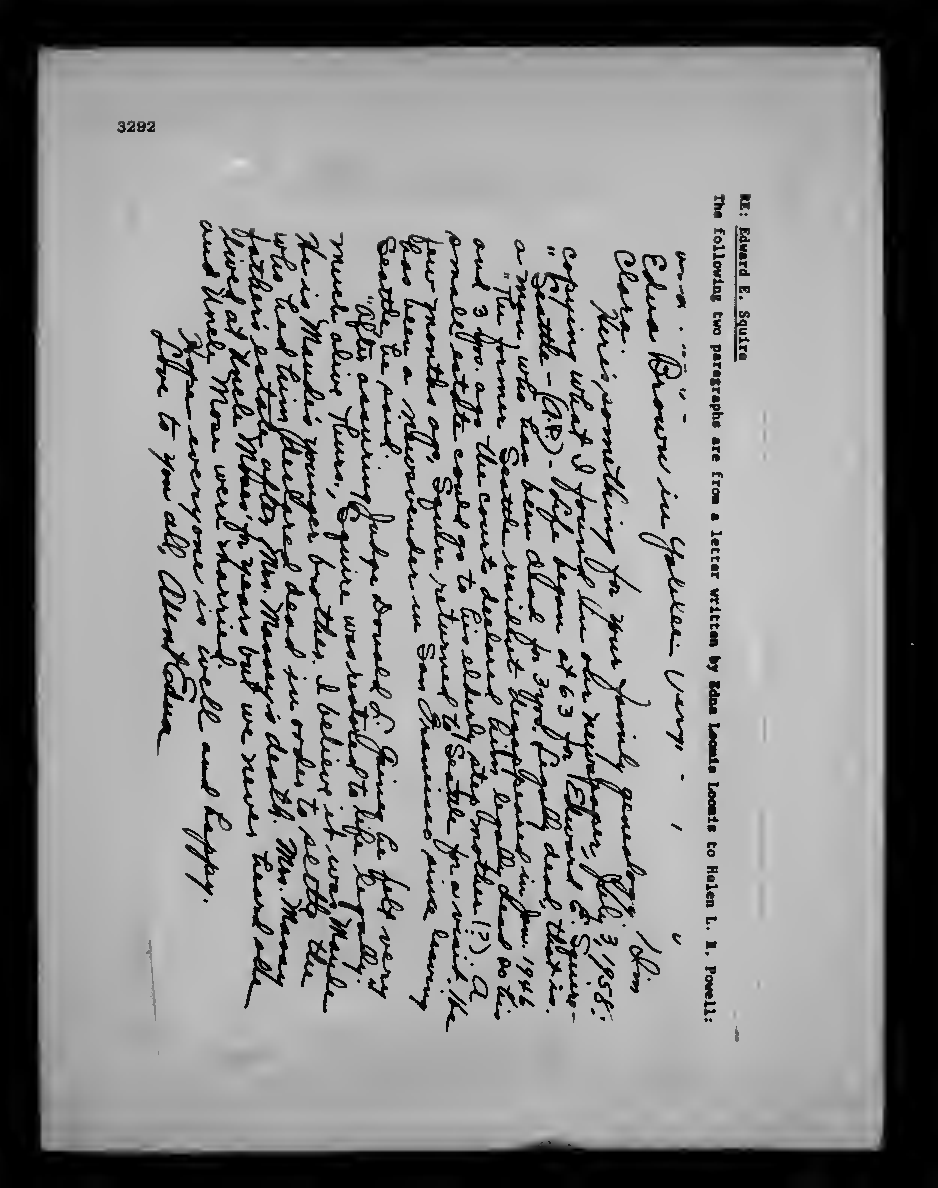 3292
RE: Edward E. Squire
The following two paragraphs are from a letter written by Edna Loomis Loomis to Helen L. R. Powell:
Edna Brown in
Clara:
Here is something for your family genealogy. I'm
copying what I found in old newspaper, July 3, 1958:
"Seattle - (A.P.) - Life began at 63 for Edward E. Squire -
a man who has been dead for 3 yrs. Legally dead, that is.
"The former Seattle resident disappeared in Jan. 1946
and 3 yrs. ago the court declared him legally dead so his
small estate could go to his elderly step mother (?). A
few months ago, Squire returned to Seattle for a visit. He
has been a newsvender in San Francisco since leaving
Seattle, he said.
"After assuring Judge Donald L. Gaines he felt very
much alive Thurs., Squire was restored to life legally."
He is Maude's younger brother. I believe it was Maybe
who had him declared dead in order to settle the
father's estate after Mrs. Massey's death. Mrs. Massey
lived at Uncle Moses for years but we never heard
and Uncle Mose were married.
Hope everyone is well and happy.
Love to you all, Aunt Edna